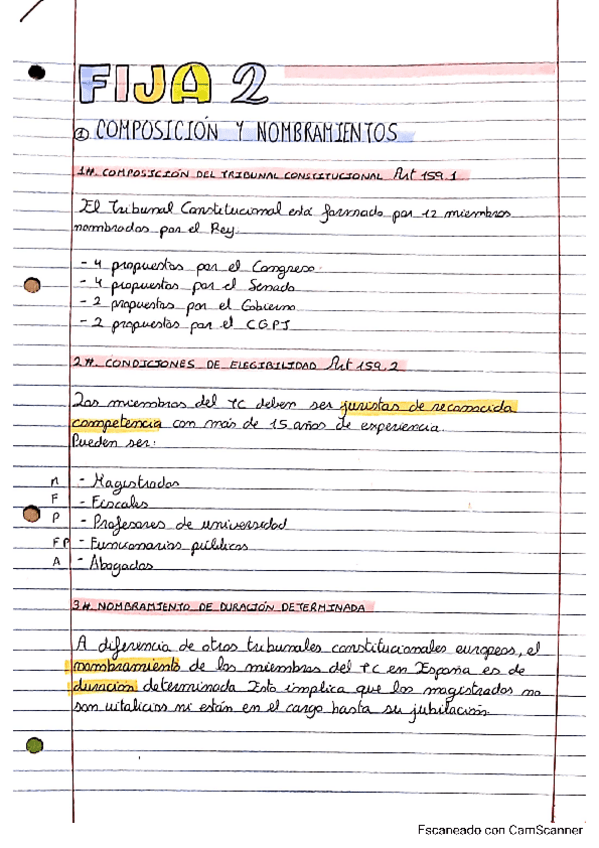 FIJA 2
① COMPOSICIÓN Y NOMBRAMIENTOS
1#. COMPOSICIÓN DEL TRIBUNAL CONSTITUCIONAL Art 159.1
El Tribunal Constitucional está formado por 12 miembros
nombrados por el Rey.
- 4 propuestos por el Congreso.
- 4 propuestos por el Senado
- 2 propuestos por el Gobierno
- 2 propuestos por el CGPJ
2#. CONDICIONES DE ELEGIBILIDAD Art 159.2
Los miembros del TC deben ser juristas de reconocida
competencia con más de 15 años de experiencia.
Pueden ser:
M - Magistrados
F - Fiscales
P - Profesores de universidad
FP - Funcionarios públicos
A - Abogados
3#. NOMBRAMIENTO DE DURACIÓN DETERMINADA
A diferencia de otros tribunales constitucionales europeos, el
nombramiento de los miembros del TC en España es de
duración determinada. Esto implica que los magistrados no
son vitalicios ni están en el cargo hasta su jubilación.
Escaneado con CamScanner